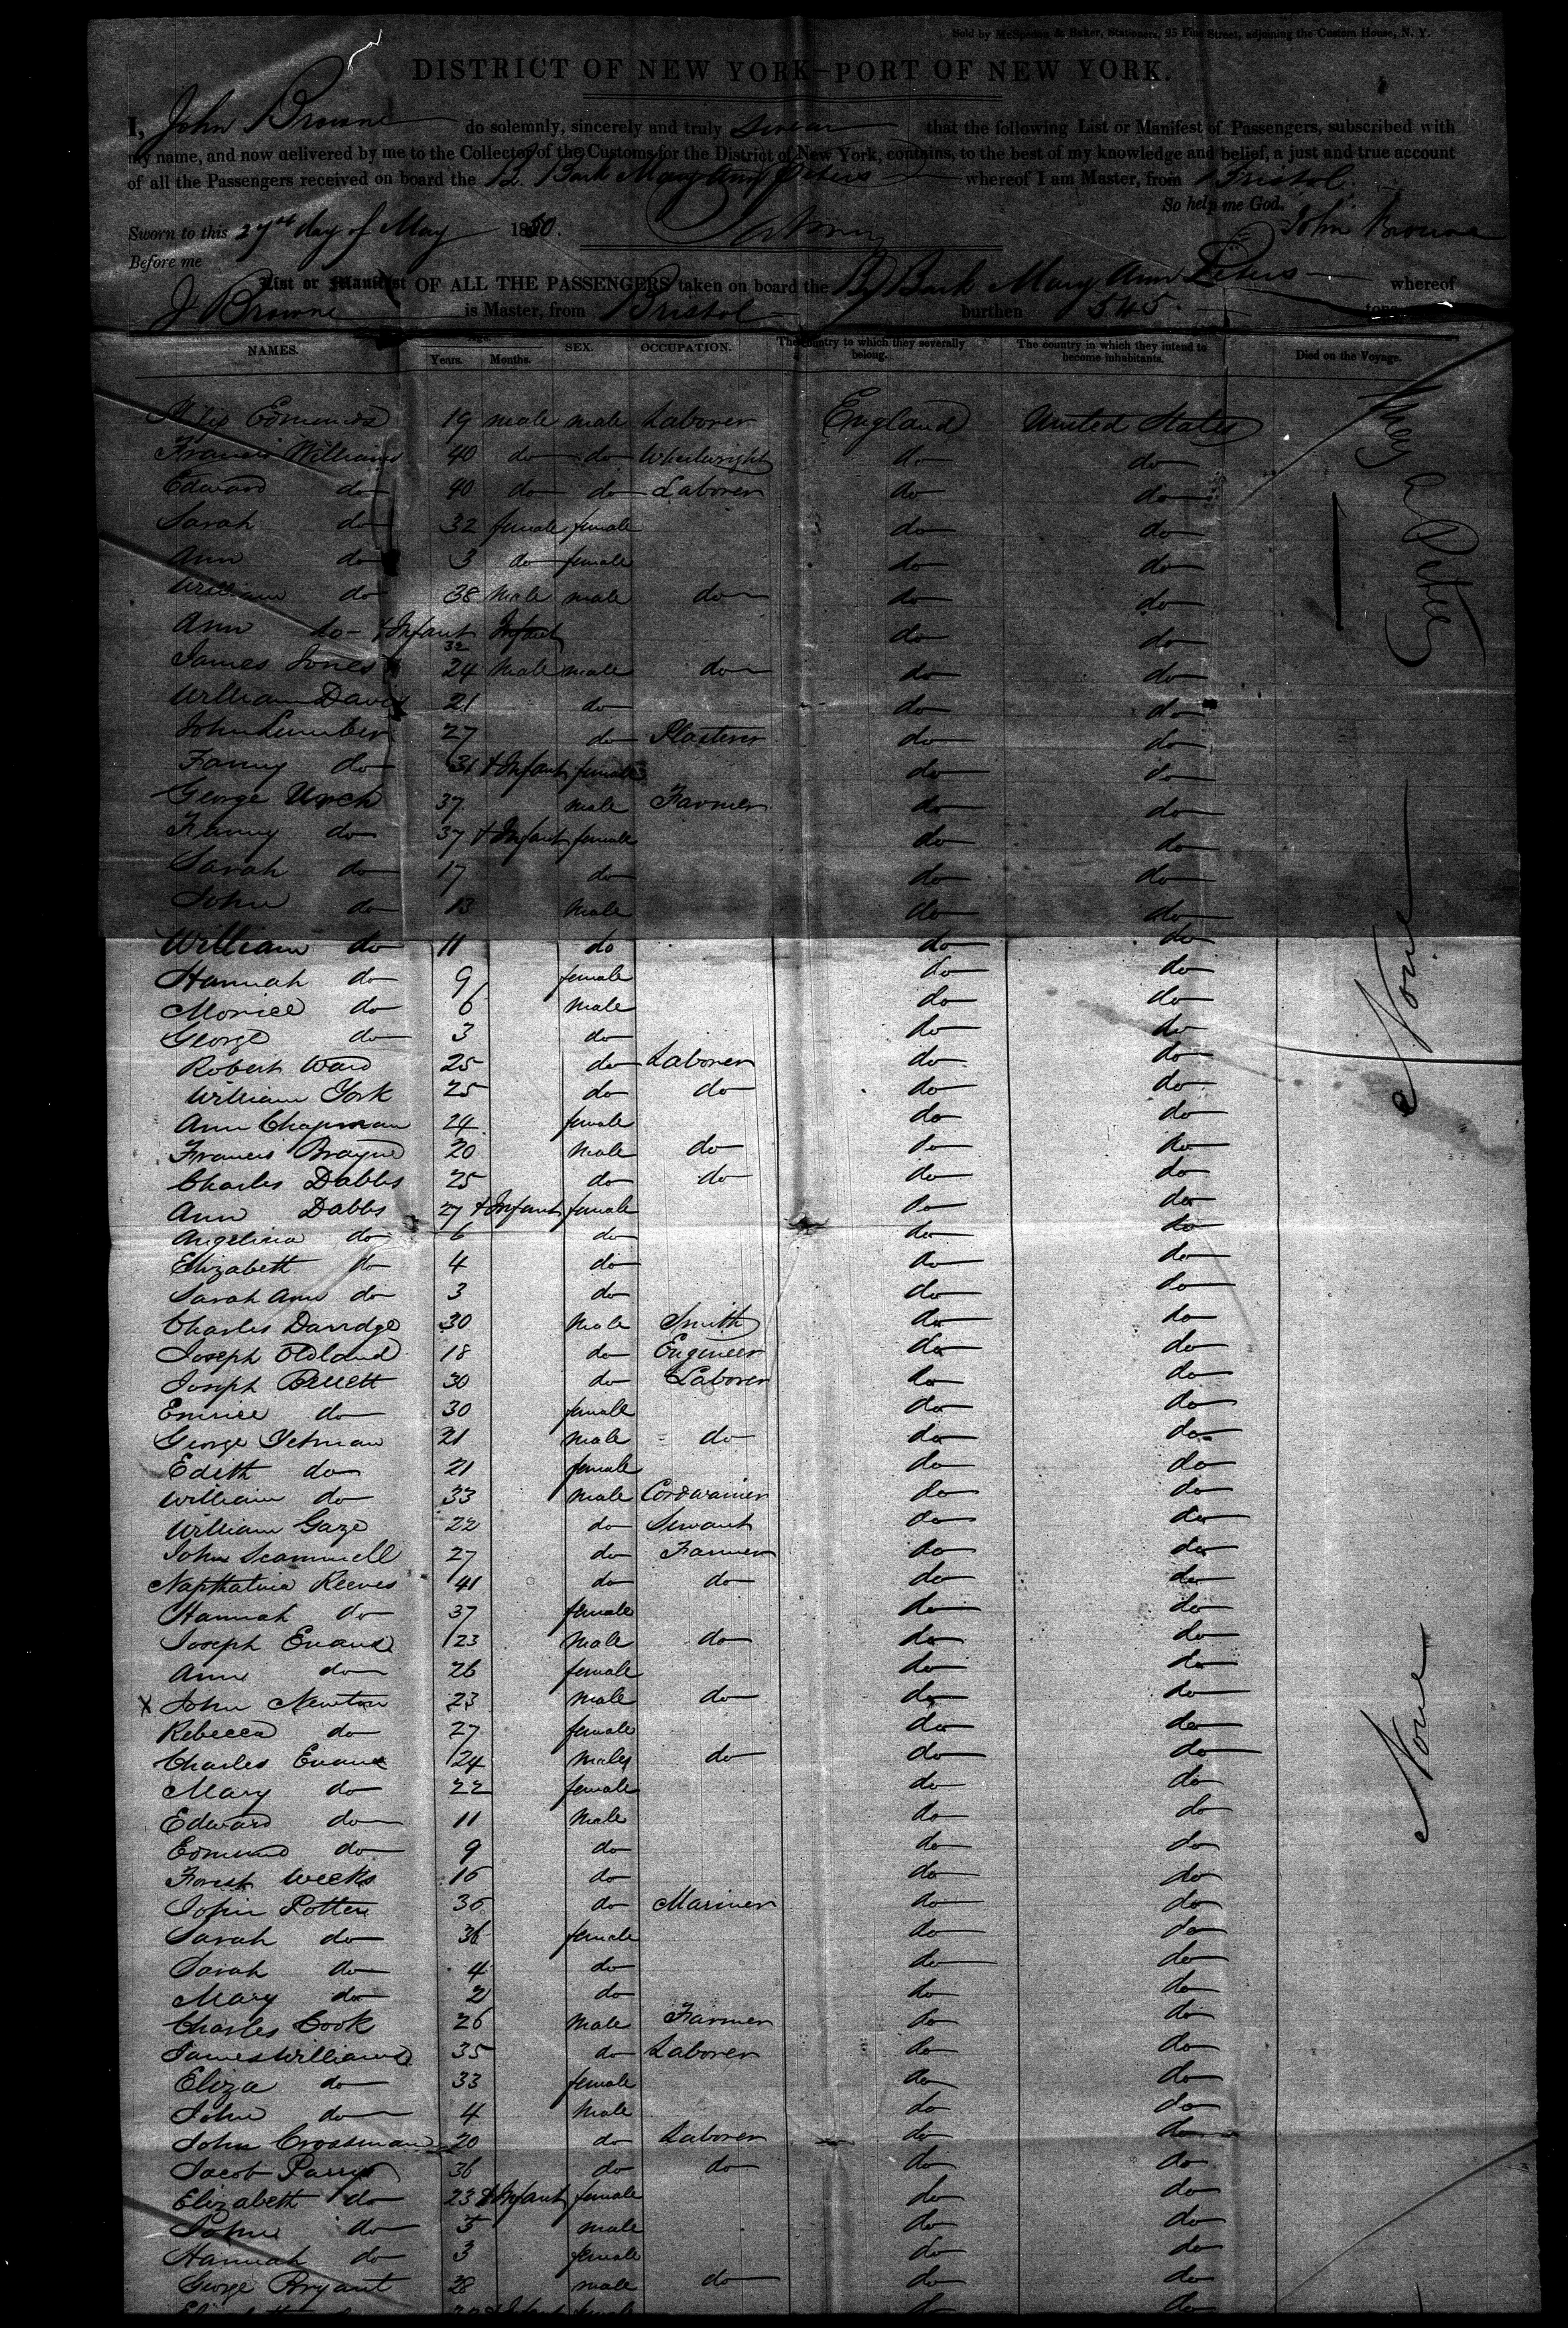 Sold by McSpedon & Baker, Stationers, 25 Pine Street, adjoining the Custom House, N. Y.
DISTRICT OF NEW YORK—PORT OF NEW YORK.
I, John Browne do solemnly, sincerely and truly swear that the following List or Manifest of Passengers, subscribed with
my name, and now delivered by me to the Collector of the Customs for the District of New York, contains, to the best of my knowledge and belief, a just and true account
of all the Passengers received on board the Br. Bark Mary Ann Peters whereof I am Master, from Bristol
So help me God.
Sworn to this 27th day of May 1850. John Browne
Before me
List or Manifest OF ALL THE PASSENGERS taken on board the Br Bark Mary Ann Peters whereof
J Browne is Master, from Bristol burthen 545 tons
NAMES. Years. Months. SEX. OCCUPATION. The country to which they severally belong. The country in which they intend to become inhabitants. Died on the Voyage.
Edmunds 19 male male Laborer England United States
Francis Williams 40 do do Wheelwright do do
Edward do 40 do do Laborer do do
Sarah do 32 female female do do
Ann do 3 do female do do
William do 38 Male male do do do
Ann do + Infant 32 Infant do do
James Jones 24 Male male do do do
William Davis 21 do do do
John Lumber 27 do Plasterer do do
Fanny do 31 + Infant female do do
George Urch 37 male Farmer do do
Fanny do 37 + Infant female do do
Sarah do 17 do do do
John do 13 Male do do
William do 11 do do do
Hannah do 9 female do do
Morice do 6 Male do do
George do 3 do do do
Robert Ward 25 do Laborer do do
William York 25 do do do do
Ann Chapman 24 female do do
Francis Brayne 20 Male do do do
Charles Dabbs 25 do do do do
Ann Dabbs 27 + Infant female do do
Angelina do 6 do do do
Elizabeth do 4 do do do
Sarah Ann do 3 do do do
Charles Darrdge 30 Male Smith do do
Joseph Oldland 18 do Engineer do do
Joseph Bellett 30 do Laborer do do
do 30 female do do
George Yetman 21 Male do do do
Edith do 21 female do do
William do 33 Male Cordwainer do do
William Gaze 22 do Servant do do
John Scammell 27 do Farmer do do
Napthalina Reeves 41 do do do do
Hannah do 37 female do do
Joseph Evans 23 Male do do do
Ann do 26 female do do
X John Newton 23 Male do do do
Rebecca do 27 female do do
Charles Evans 24 Male do do do
Mary do 22 female do do
Edward do 11 Male do do
Edmund do 9 do do do
Forest Weeks 16 do do do
John Potter 36 do Mariner do do
Sarah do 36 female do do
Sarah do 4 do do do
Mary do 2 do do do
Charles Cook 26 Male Farmer do do
James Williams 35 do Laborer do do
Eliza do 33 female do do
John do 4 Male do do
John Crossman 20 do Laborer do do
Jacob Parry 36 do do do do
Elizabeth do 23 & Infant female do do
John do 5 male do do
Hannah do 3 female do do
George Bryant 28 male do do do
do do
Mary A Peters
None
None